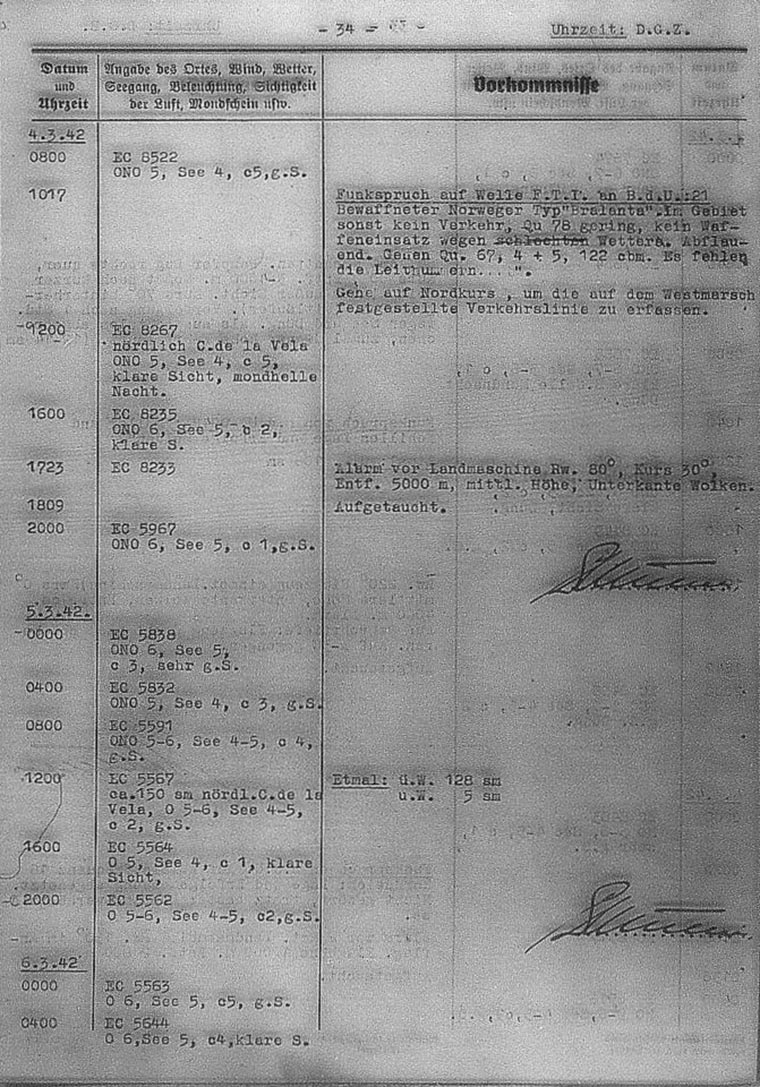 - 34 -
Uhrzeit: D.G.Z.
Datum
und
Uhrzeit
Angabe des Ortes, Wind, Wetter,
Seegang, Beleuchtung, Sichtigkeit
der Luft, Mondschein usw.
Vorkommnisse
4.3.42
0800 EC 8522
ONO 5, See 4, c5,g.S.
1017 Funkspruch auf Welle F.T.T. an B.d.U.:21
Bewaffneter Norweger Typ"Bralanta".Im Gebiet
sonst kein Verkehr, Qu 78 gering, kein Waf-
feneinsatz wegen schlechten Wetters. Abflau-
end. Genen Qu. 67, 4 + 5, 122 cbm. Es fehlen
die Leitnummern....".
Gehe auf Nordkurs , um die auf dem Westmarsch
festgestellte Verkehrslinie zu erfassen.
1200 EC 8267
nördlich C.de la Vela
ONO 5, See 4, c 5,
klare Sicht, mondhelle
Nacht.
1600 EC 8235
ONO 6, See 5, b 2,
klare S.
1723 EC 8233 Alarm vor Landmaschine Rw. 80°, Kurs 30°,
Entf. 5000 m, mittl. Höhe, Unterkante Wolken.
1809 Aufgetaucht.
2000 EC 5967
ONO 6, See 5, c 1,g.S.
5.3.42.
0000 EC 5838
ONO 6, See 5,
c 3, sehr g.S.
0400 EC 5832
ONO 5, See 4, c 3, g.S.
0800 EC 5591
ONO 5-6, See 4-5, c 4,
g.S.
1200 EC 5567 Etmal: ü.W. 128 sm
ca.150 sm nördl.C.de la u.W. 5 sm
Vela, O 5-6, See 4-5,
c 2, g.S.
1600 EC 5564
O 5, See 4, c 1, klare
Sicht,
2000 EC 5562
O 5-6, See 4-5, c2,g.S.
6.3.42
0000 EC 5563
O 6, See 5, c5, g.S.
0400 EC 5644
O 6,See 5, c4,klare S.